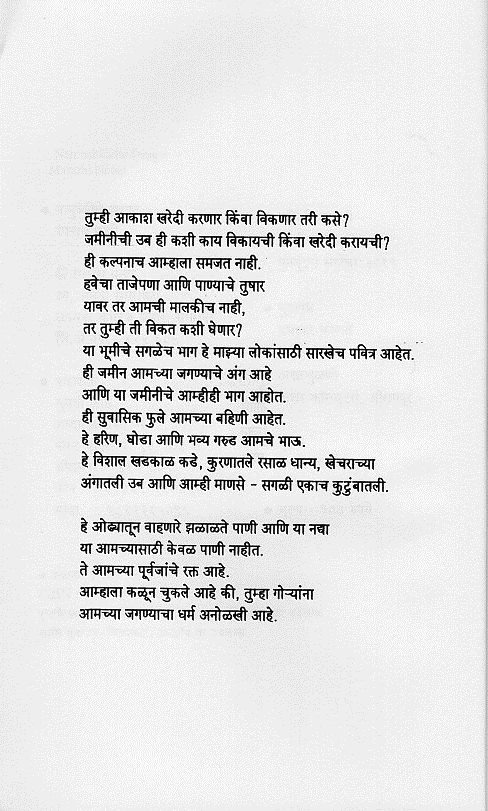 तुम्ही आकाश खरेदी करणार किंवा विकणार तरी कसे?
जमीनीची उब ही कशी काय विकायची किंवा खरेदी करायची?
ही कल्पनाच आम्हाला समजत नाही.
हवेचा ताजेपणा आणि पाण्याचे तुषार
यावर तर आमची मालकीच नाही,
तर तुम्ही ती विकत कशी घेणार?
या भूमीचे सगळेच भाग हे माझ्या लोकांसाठी सारखेच पवित्र आहेत.
ही जमीन आमच्या जगण्याचे अंग आहे
आणि या जमीनीचे आम्हीही भाग आहोत.
ही सुवासिक फुले आमच्या बहिणी आहेत.
हे हरिण, घोडा आणि भव्य गरुड आमचे भाऊ.
हे विशाल खडकाळ कडे, कुरणातले रसाळ धान्य, खेचराच्या
अंगातली उब आणि आम्ही माणसे - सगळी एकाच कुटुंबातली.
हे ओढ्यातून वाहणारे झळाळते पाणी आणि या नद्या
या आमच्यासाठी केवळ पाणी नाहीत.
ते आमच्या पूर्वजांचे रक्त आहे.
आम्हाला कळून चुकले आहे की, तुम्हा गोऱ्यांना
आमच्या जगण्याचा धर्म अनोळखी आहे.